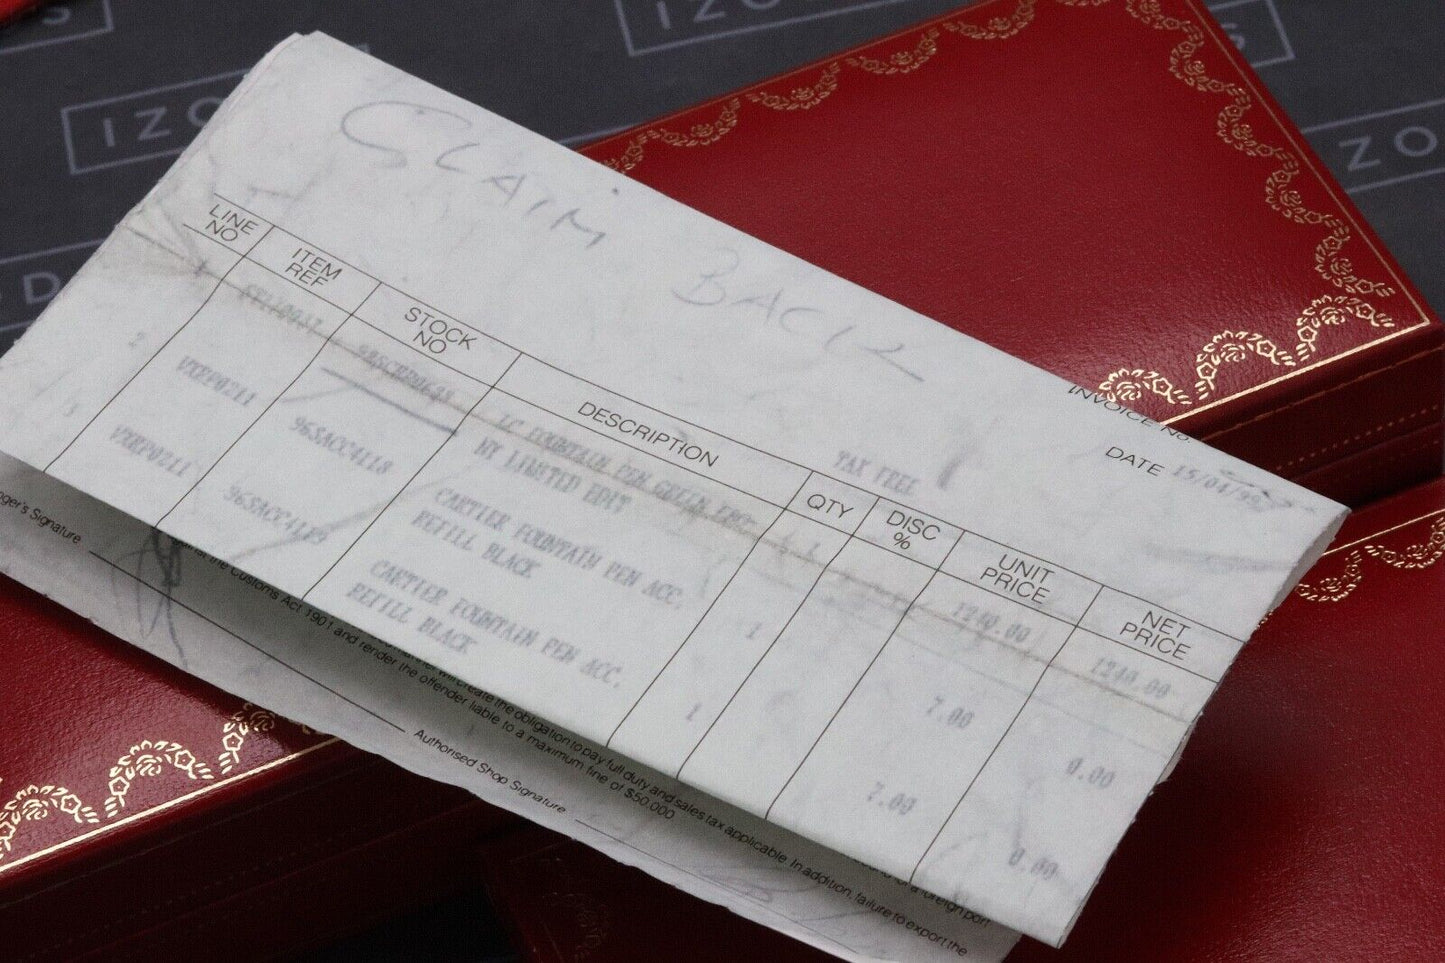 IZO
IZO
S
CLAIM BACK
INVOICE No.
DATE 15/04/99
TAX FREE
LINE NO
ITEM REF
STOCK NO
DESCRIPTION
QTY
DISC %
UNIT PRICE
NET PRICE
LC FOUNTAIN PEN GREEN
WT LIMITED EDIT
1240.00
1240.00
2 VXRP0211 96SACC4118 CARTIER FOUNTAIN PEN ACC. 1 7.00 0.00
REFILL BLACK
3 VXRP0211 96SACC4119 CARTIER FOUNTAIN PEN ACC. 1 7.00 0.00
REFILL BLACK
ger's Signature
the Customs Act 1901 and render the offender liable to a maximum fine of $50,000
will create the obligation to pay full duty and sales tax applicable. In addition, failure to export the
of a foreign port
Authorised Shop Signature